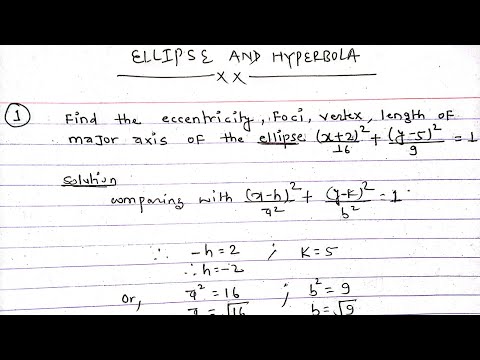 ELLIPSE AND HYPERBOLA
xx
① Find the eccentricity, Foci, vertex, length of
major axis of the ellipse (x+2)²/16 + (y-5)²/9 = 1
Solution
comparing with (x-h)²/a² + (y-k)²/b² = 1.
∴ -h = 2 ; K = 5
∴ h = -2
Or, a² = 16 ; b² = 9
a = √16 b = √9